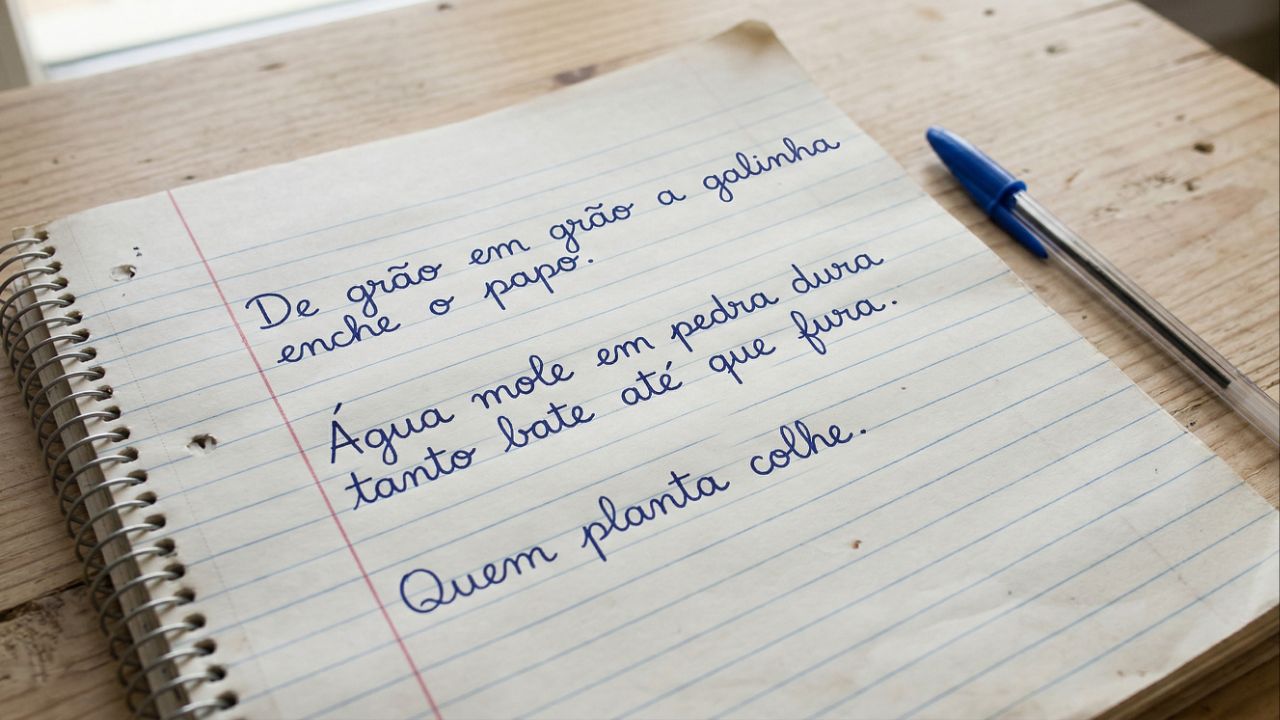 De grão em grão a galinha
enche o papo.
Água mole em pedra dura
tanto bate até que fura.
Quem planta colhe.